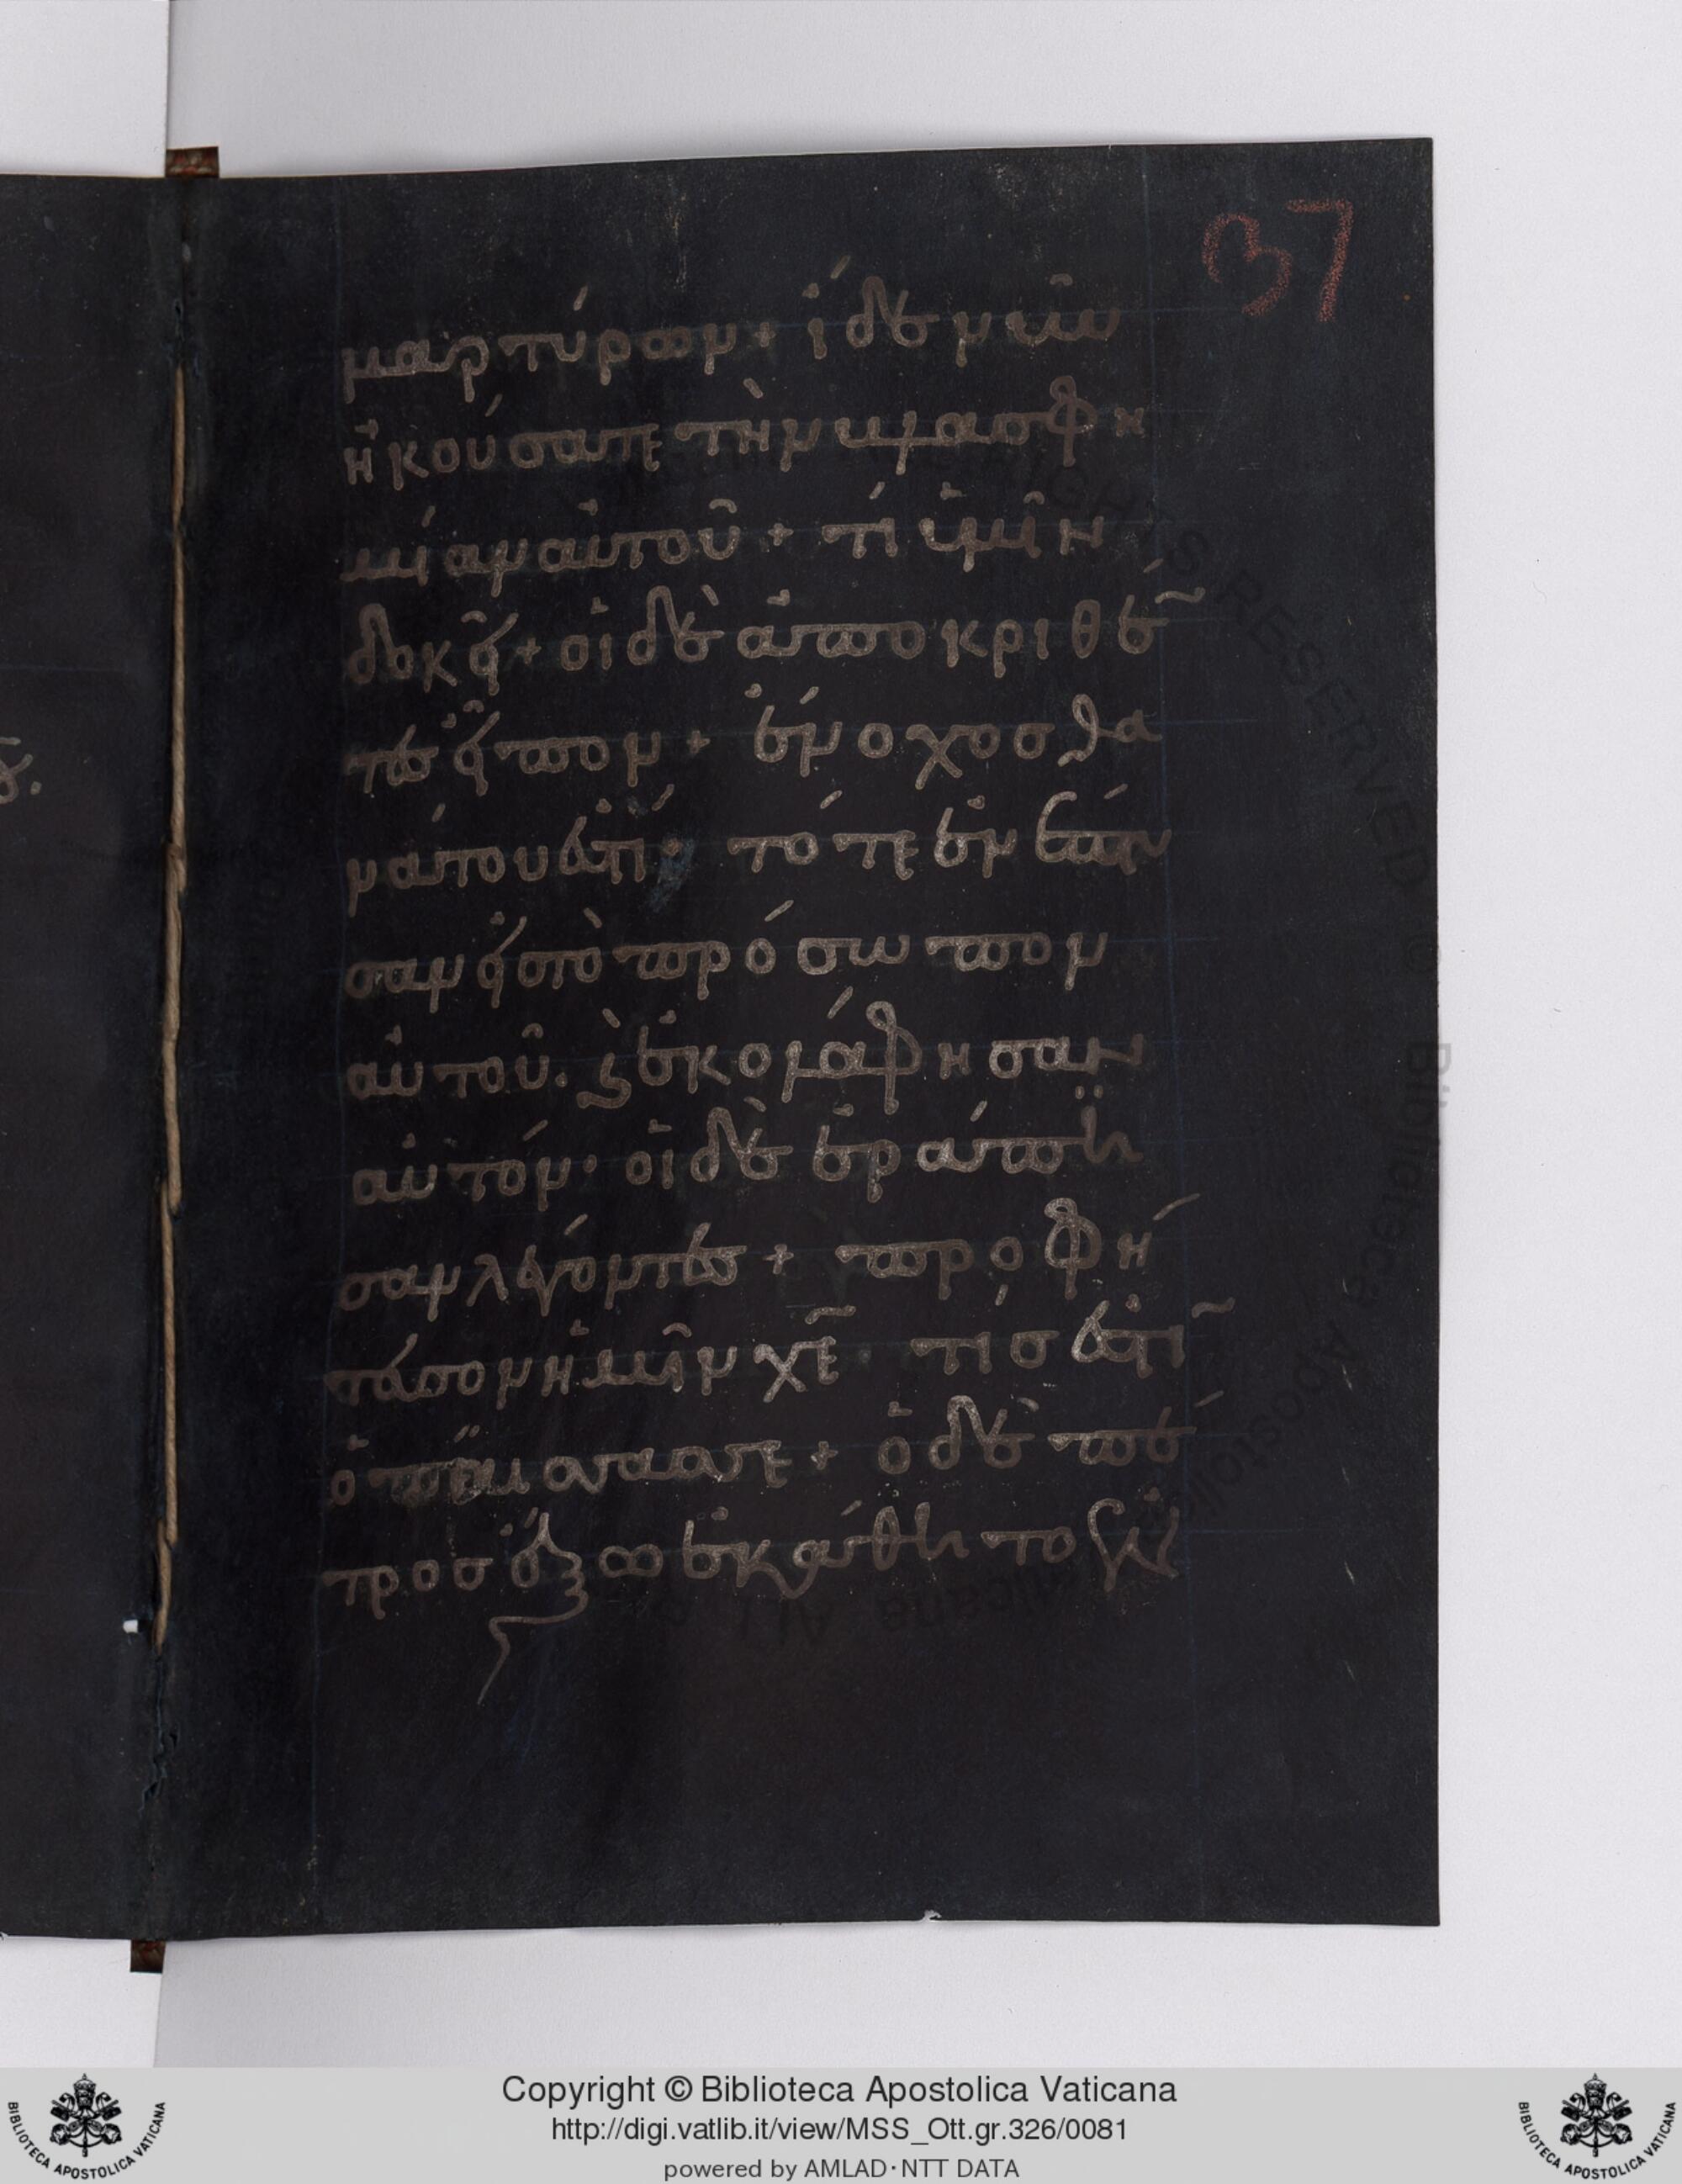 37
μαρτύρων + ίδε νῦν
ἠκούσατε τὴν βλασφη
μίαν αὐτοῦ + τί ὑμῖν
δοκεῖ + οἱ δὲ ἀποκριθέ
τες εἶπον + ἔνοχοσ θα
νάτου ἐστί · τότε ἐνέπτυ
σαν εἰς τὸ πρόσωπον
αὐτοῦ. ϛ ἐκολάφησαν
αὐτόν · οἱ δὲ ἐράπη
σαν λέγοντες + προφή
τευσον ἡμῖν χε̄ · τίσ ἐστι
ὁ παίσασ σε + ὁ δὲ πέ
τροσ ἔξω ἐκάθητο
Copyright © Biblioteca Apostolica Vaticana
http://digi.vatlib.it/view/MSS_Ott.gr.326/0081
powered by AMLAD·NTT DATA
BIBLIOTECA APOSTOLICA VATICANA
BIBLIOTECA APOSTOLICA VATICANA